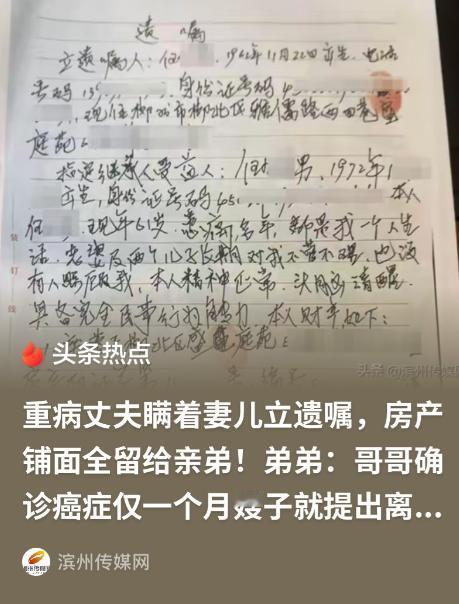 遗嘱
立遗嘱人：任 1962年11月22日出生，电话
号码13 身份证号码4
，现住柳州市柳北区雅儒路西四巷
庭苑
指定继承人受益人：任 男，1972年1
出生，身份证号码451 本人
任 现年61岁，患病多年，都是我一个人生
活，老婆及两个儿子长期对我不管不顾，也没
有人照顾我，本人精神正常，头脑清醒，
具备完全民事行为能力，本人财产如下：
装订线
头条@滨州传媒网
头条热点
重病丈夫瞒着妻儿立遗嘱，房产
铺面全留给亲弟！弟弟：哥哥确
诊癌症仅一个月嫂子就提出离...
滨州传媒网